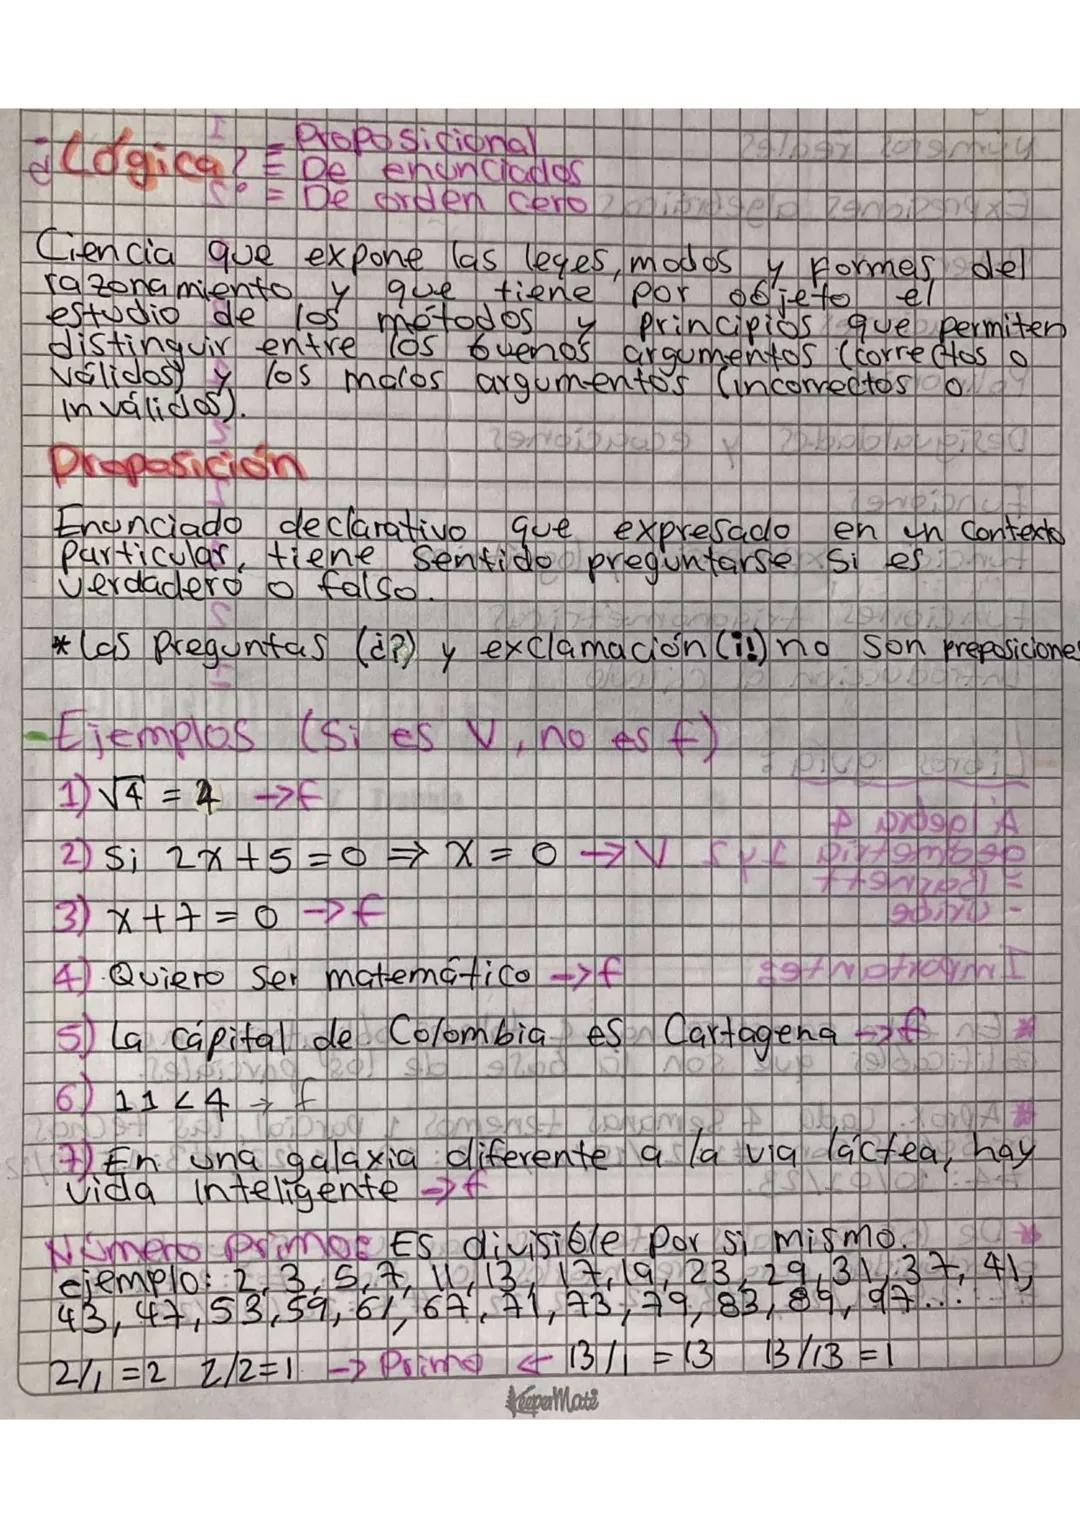 ¿Lógica?
= Proposicional
= De enunciados
= De orden cero
Ciencia que expone las leyes, modos y formas del
razonamiento y que tiene por objeto el
estudio de los métodos y principios que permiten
distinguir entre los buenos argumentos (correctos o
válidos) y los malos argumentos (incorrectos o
inválidos).
Proposición
Enunciado declarativo que expresado en un contexto
particular, tiene sentido preguntarse si es
verdadero o falso.
* Las Preguntas (¿?) y exclamación (¡!) no son preposiciones
- Ejemplos (Si es V, no es f)
1) √4 = 2 → f
2) Si 2x + 5 = 0 ⇒ x = 0 → V
3) x + 7 = 0 → f
4) Quiero ser matemático → f
5) La cápital de Colombia es Cartagena → f
6) 11 < 4 → f
7) En una galaxia diferente a la via láctea, hay
vida inteligente → f
Número primo: Es divisible por si mismo.
ejemplo: 2, 3, 5, 7, 11, 13, 17, 19, 23, 29, 31, 37, 41,
43, 47, 53, 59, 61, 67, 71, 73, 79, 83, 89, 97...
2/1 = 2 2/2 = 1 → Primo ← 13/1 = 13 13/13 = 1
KeeperMate